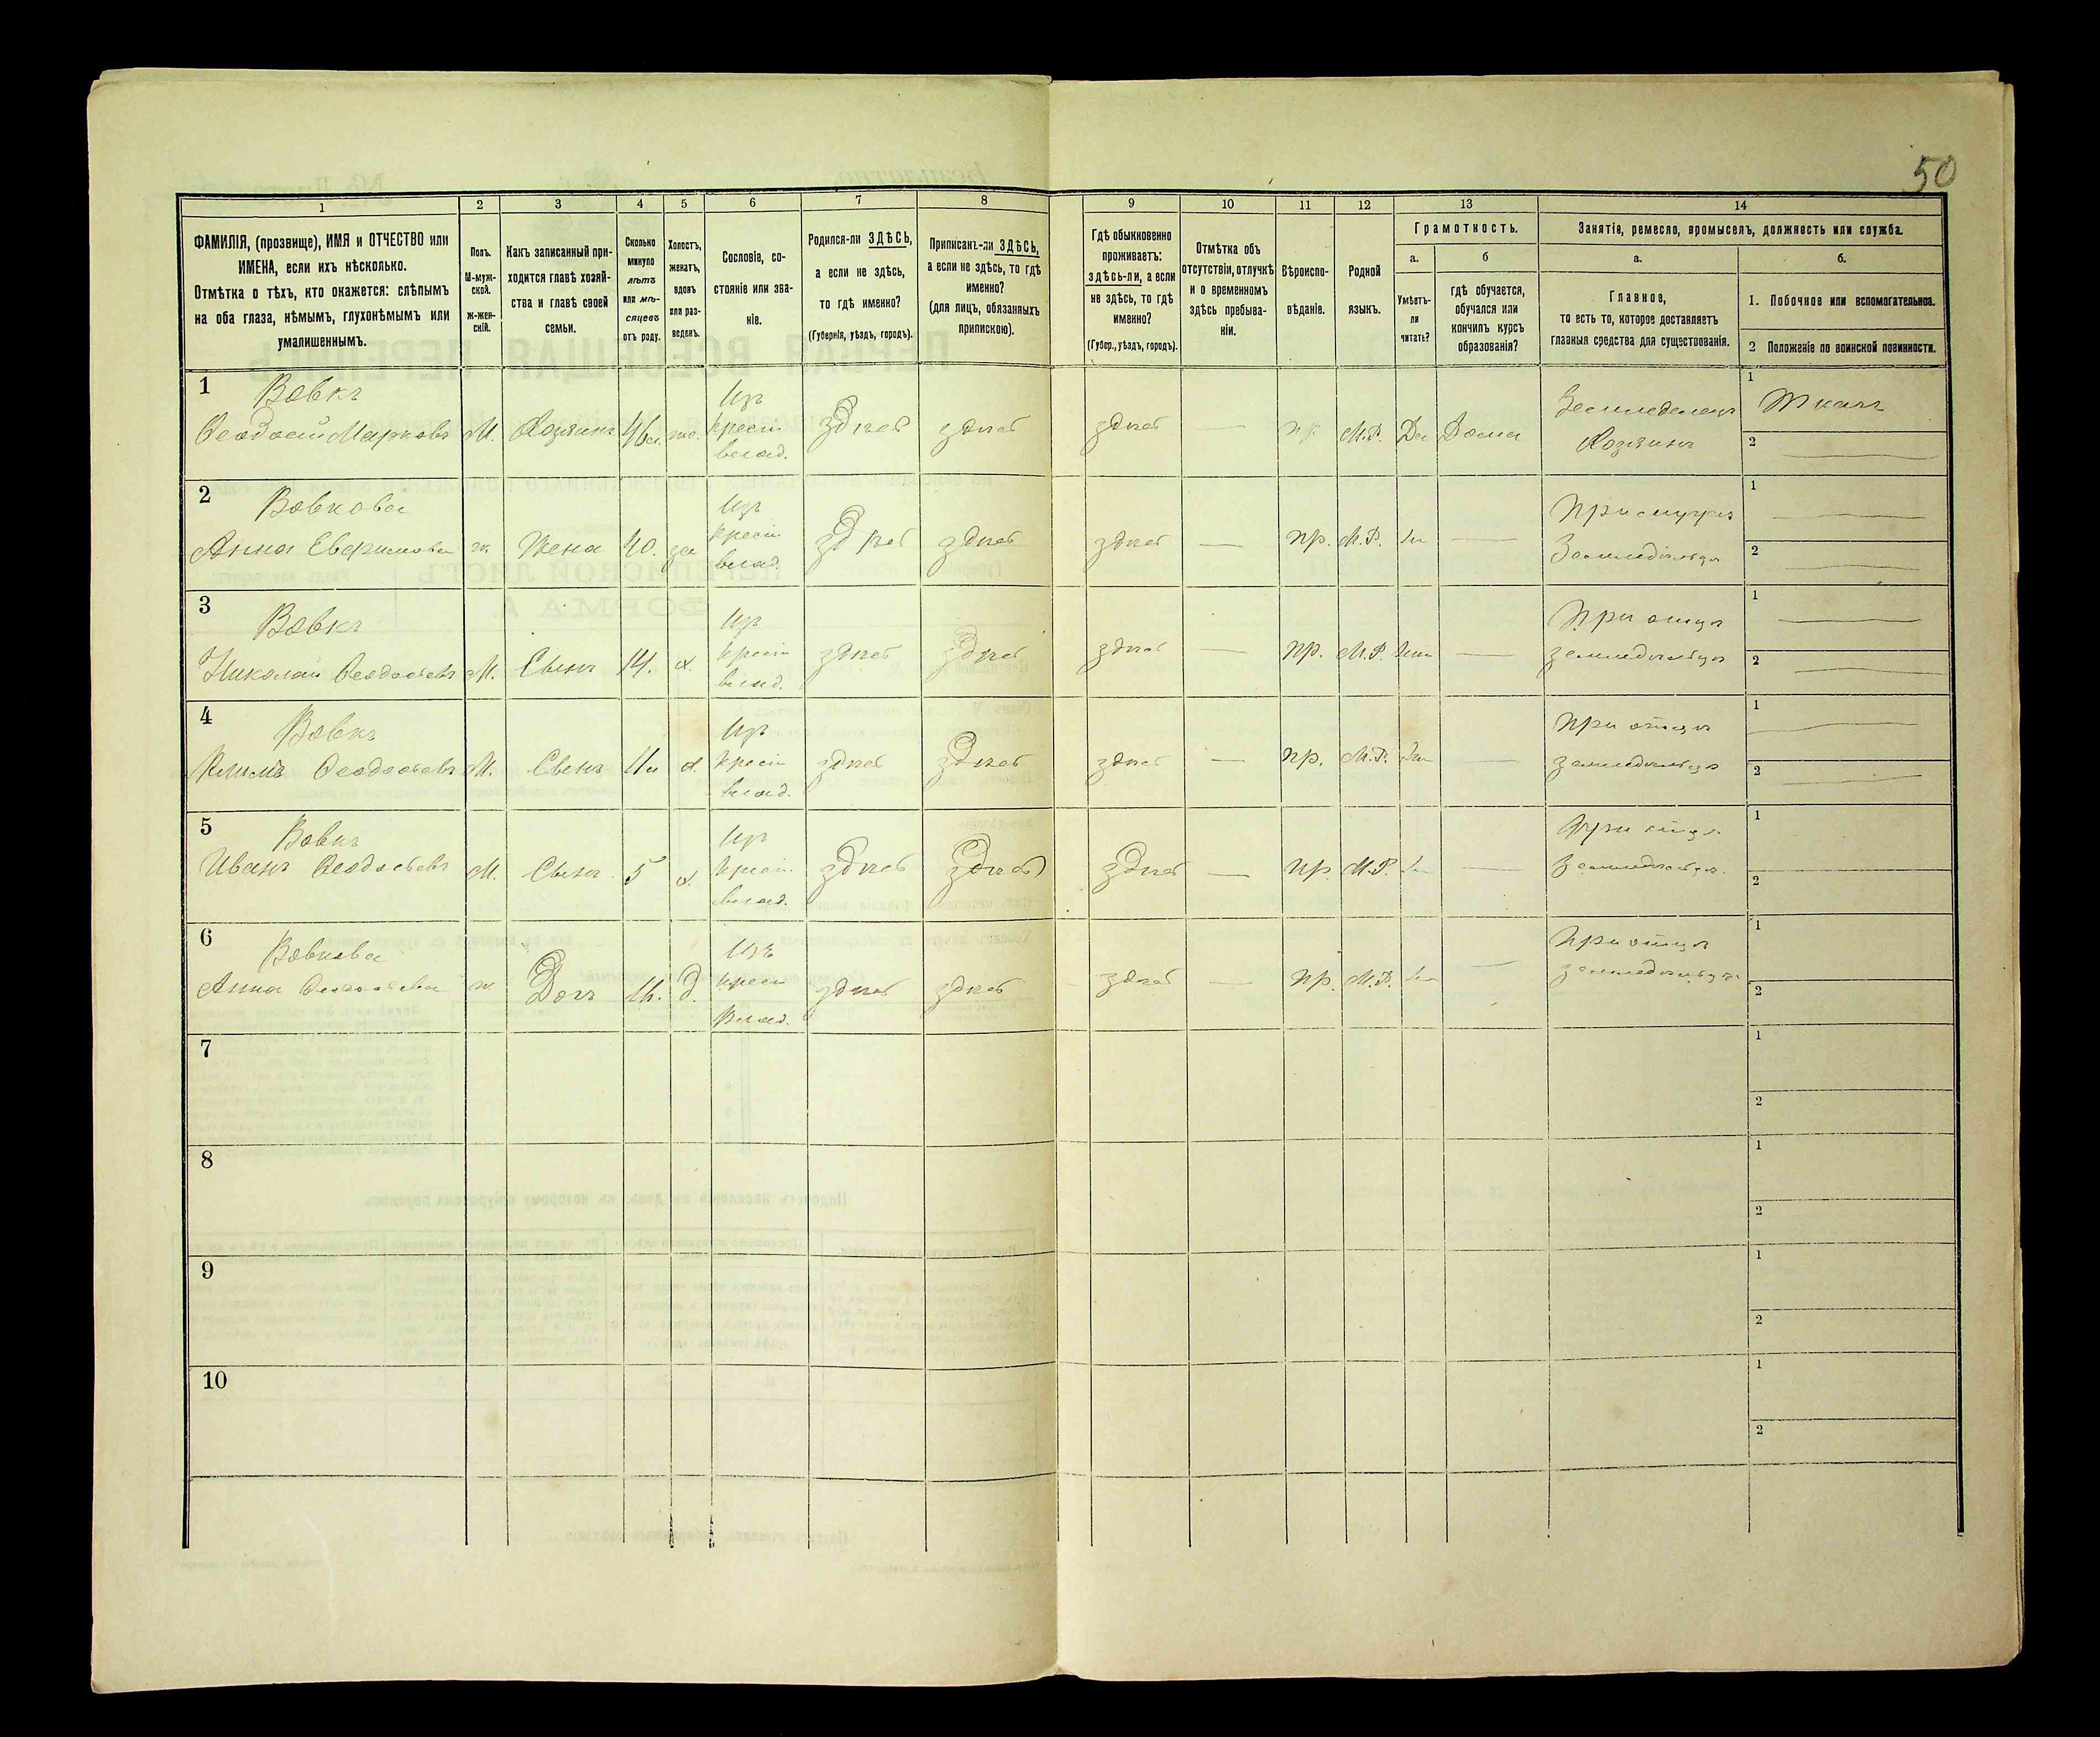 50
1 2 3 4 5 6 7 8 9 10 11 12 13 14
ФАМИЛІЯ, (прозвище), ИМЯ и ОТЧЕСТВО или
ИМЕНА, если ихъ нѣсколько.
Отмѣтка о тѣхъ, кто окажется: слѣпымъ
на оба глаза, нѣмымъ, глухонѣмымъ или
умалишеннымъ.
Полъ.
М-муж-
ской.
ж-жен-
скій.
Какъ записанный при-
ходится главѣ хозяй-
ства и главѣ своей
семьи.
Сколько
минуло
лѣтъ
или мѣ-
сяцевъ
отъ роду.
Холостъ,
женатъ,
вдовъ
или раз-
веденъ.
Сословіе, со-
стояніе или зва-
ніе.
Родился-ли ЗДѢСЬ,
а если не здѣсь,
то гдѣ именно?
(Губернія, уѣздъ, городъ).
Приписанъ-ли ЗДѢСЬ,
а если не здѣсь, то гдѣ
именно?
(для лицъ, обязанныхъ
припискою).
Гдѣ обыкновенно
проживаетъ:
здѣсь-ли, а если
не здѣсь, то гдѣ
именно?
(Губер., уѣздъ, городъ).
Отмѣтка объ
отсутствіи, отлучкѣ
и о временномъ
здѣсь пребыва-
ніи.
Вѣроиспо-
вѣданіе.
Родной
языкъ.
Грамотность.
а.
Умѣетъ-
ли
читать?
б
гдѣ обучается,
обучался или
кончилъ курсъ
образованія?
Занятіе, ремесло, промыселъ, должность или служба.
а.
Главное,
то есть то, которое доставляетъ
главныя средства для существованія.
б.
1. Побочное или вспомогательное.
2 Положеніе по воинской повинности.
1 Вовкъ
Ѳеодосій Марковъ М. Хозяинъ 46 л. же. Изъ
крест.
влад. здѣсь здѣсь здѣсь — пр. М.Р. Да Дома Земледелецъ
Хозяинъ 1 Ткачъ
2 —
2 Вовкова
Анна ж Жена 40. за Изъ
крест
влад. здѣсь здѣсь здѣсь — пр. М.Р. — При мужѣ
Земледѣльцѣ 1 —
2 —
3 Вовкъ
Николай Ѳеодосіевъ М. Сынъ 14. х. Изъ
крест
влад. здѣсь здѣсь здѣсь — пр. М.Р. — При отцѣ
земледѣльцѣ 1 —
2 —
4 Вовкъ
Климъ Ѳеодосіевъ М. Сынъ х. Изъ
крест
влад. здѣсь здѣсь здѣсь — пр. М.Р. — При отцѣ
земледѣльцѣ 1 —
2 —
5 Вовкъ
Иванъ Ѳеодосіевъ М. Сынъ 5 х. Изъ
крест.
влад. здѣсь здѣсь здѣсь — пр М.Р. — При отцѣ
Земледѣльцѣ. 1
2
6 Вовкова
Анна Ѳеодосіева ж Дочь д. Изъ
крест
влад. здѣсь здѣсь здѣсь — пр. М.Р. — При отцѣ
земледѣльцѣ. 1
2
7 1
2
8 1
2
9 1
2
10 1
2